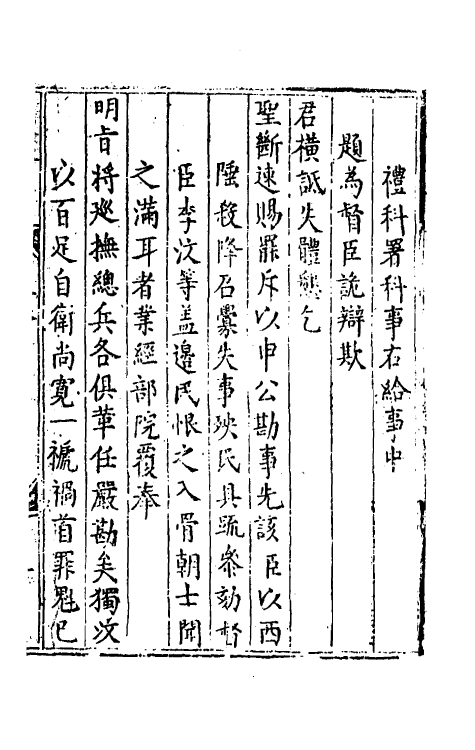 禮科署科事右給事中
題為督臣詭辯欺
君橫詆失體懇乞
聖斷速賜罷斥以申公勘事先該臣以西
陲殺降召釁失事殃民具疏參劾督
臣李汶等蓋邊民恨之入骨朝士聞
之滿耳者業經部院覆奉
明旨將廵撫總兵各俱革任嚴勘矣獨汶
以百足自衛尚寛一褫禍首罪魁已